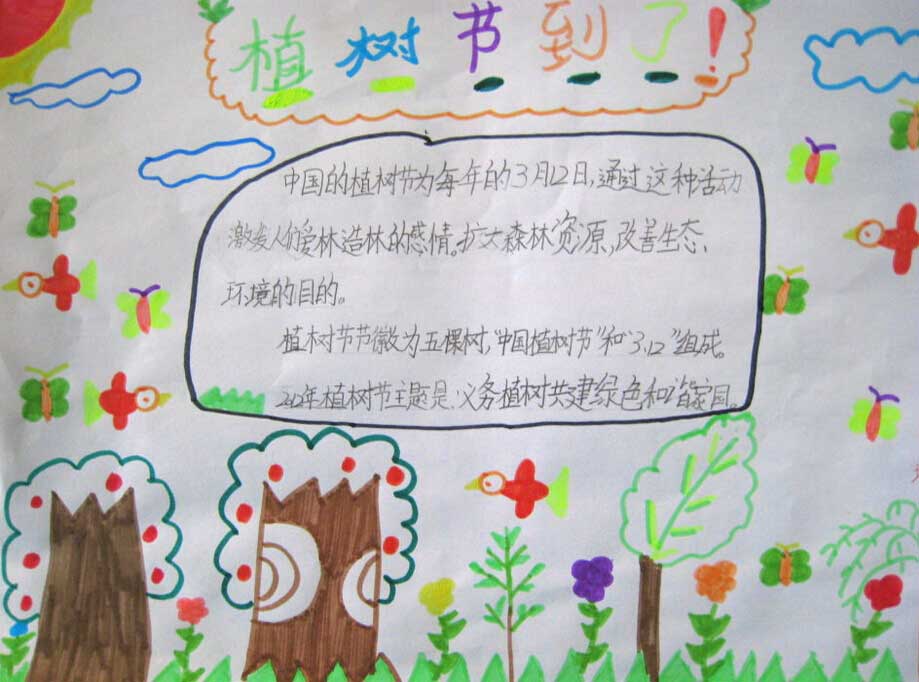 植树节到了!
中国的植树节为每年的3月12日,通过这种活动
激发人们爱林造林的感情。扩大森林资源,改善生态、
环境的目的。
植树节节徽为五棵树,"中国植树节"和"3.12"组成。
2012年植树节主题是:义务植树共建绿色和谐家园。